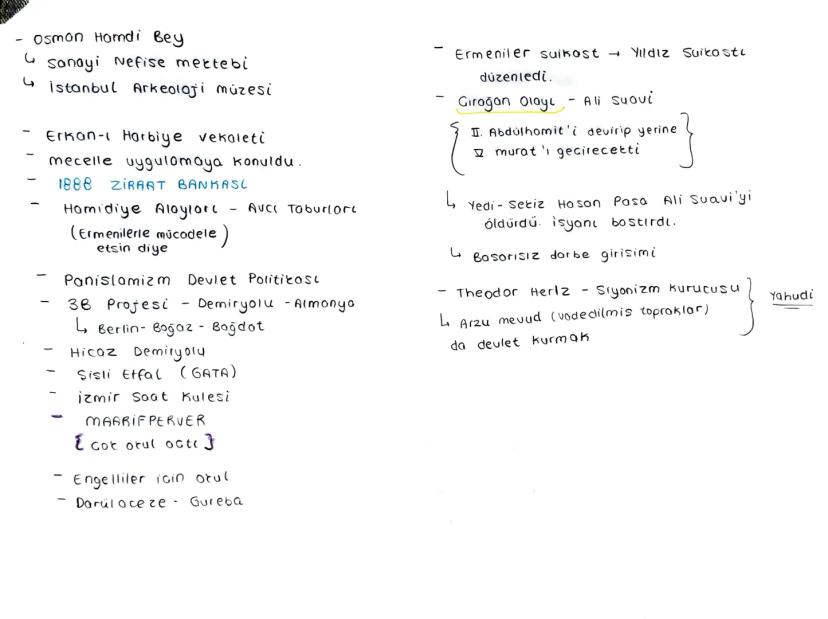 - Osman Hamdi Bey
↳ Sanayi Nefise mektebi
↳ İstanbul Arkeoloji müzesi
- Erkan-ı Harbiye vekaleti
- mecelle uygulamaya konuldu.
- 1888 ZİRAAT BANKASI
- Hamidiye Alayları - Avcı Taburları
(Ermenilerle mücadele etsin diye)
- Panislamizm Devlet Politikası
- 3B Projesi - Demiryolu - Almanya
↳ Berlin - Boğaz - Bağdat
- Hicaz Demiryolu
- Şişli Etfal (GATA)
- İzmir Saat Kulesi
- MAARİFPERVER
{Çok okul açtı}
- Engelliler için okul
- Darülaceze - Gureba
- Ermeniler suikast → Yıldız Suikastı
düzenledi.
- Çırağan Olayı - Ali Suavi
{II. Abdülhamit'i devirip yerine
V. murat'ı geçirecekti}
↳ Yedi-Sekiz Hasan Paşa Ali Suavi'yi
öldürdü. isyanı bastırdı.
↳ Başarısız darbe girişimi
- Theodor Herlz - Siyonizm kurucusu
↳ Arzu mevud (vadedilmiş topraklar)
da devlet kurmak
} Yahudi